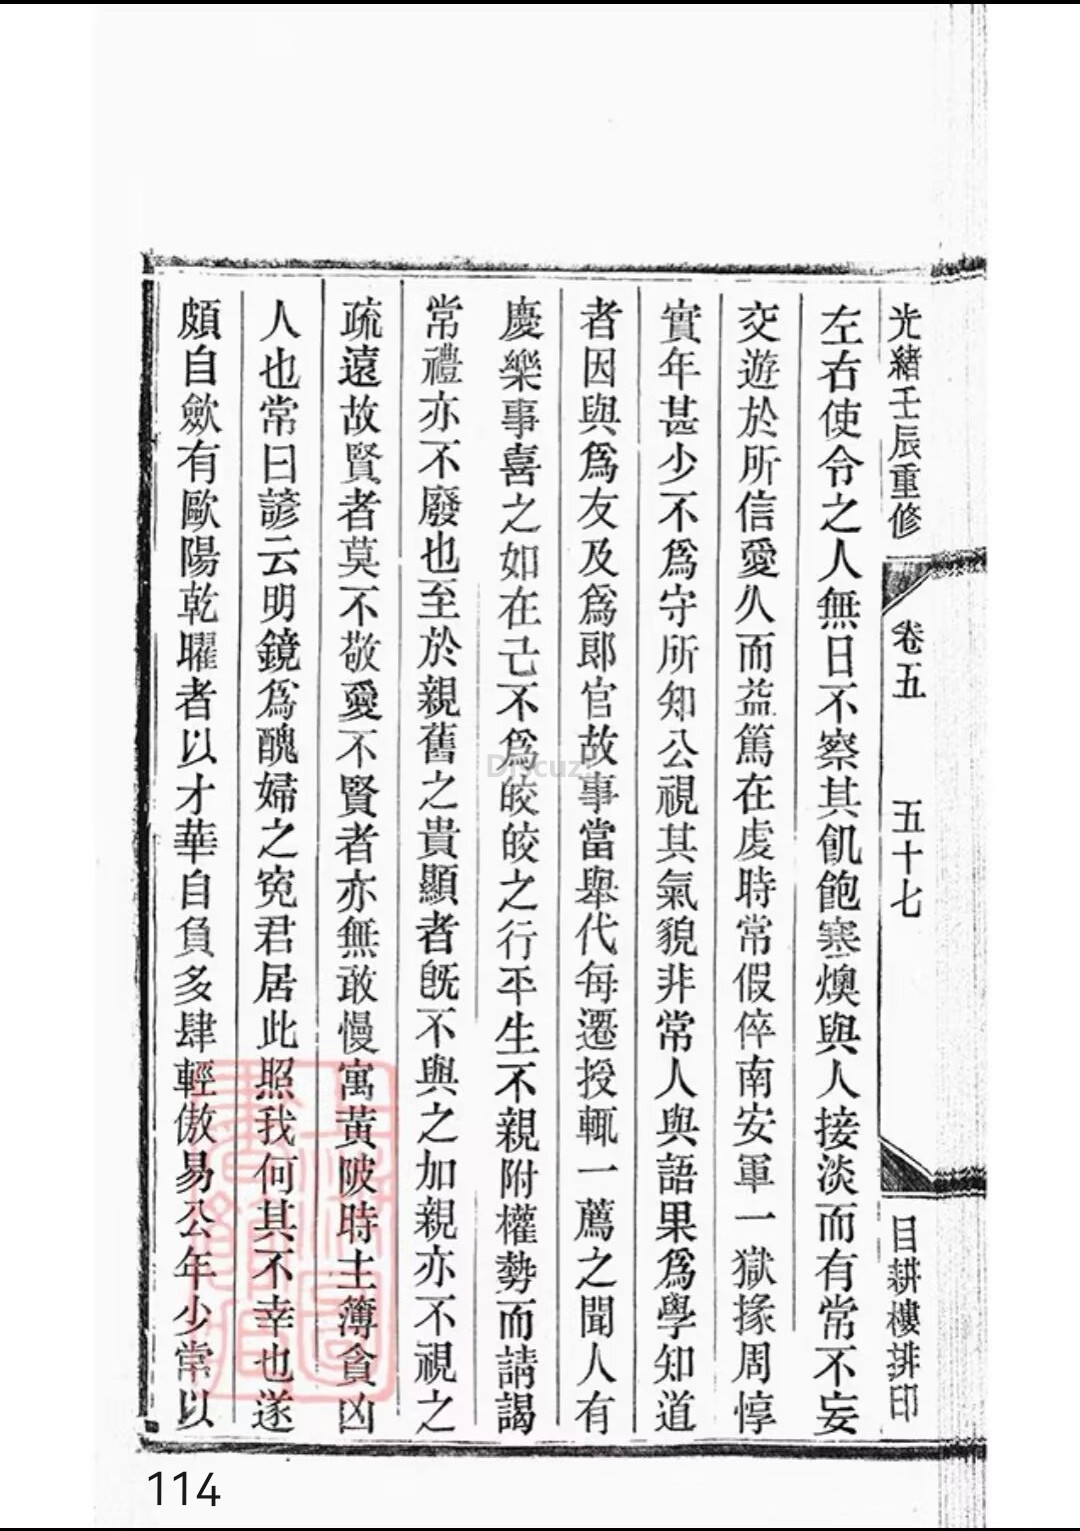 光緒壬辰重修
卷五
五十七
目耕樓排印
左右使令之人無日不察其飢飽寒燠與人接淡而有常不妄
交遊於所信愛久而益篤在虔時常假倅南安軍一獄掾周惇
實年甚少不爲守所知公視其氣貌非常人與語果爲學知道
者因與爲友及爲郞官故事當舉代每遷授輒一薦之聞人有
慶樂事喜之如在己不爲皎皎之行平生不親附權勢而請謁
常禮亦不廢也至於親舊之貴顯者旣不與之加親亦不視之
疏遠故賢者莫不敬愛不賢者亦無敢慢寓黃陂時主簿貪凶
人也常曰諺云明鏡爲醜婦之寃君居此照我何其不幸也遂
頗自歛有歐陽乾曜者以才華自負多肆輕傲易公年少常以
Discuz!
114